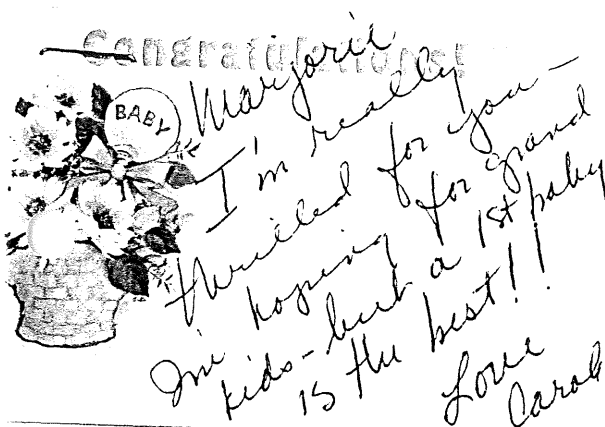 Congratulations!
BABY
Marjorie
I'm really
thrilled for you—
I'm hoping for grand
kids - but a 1st baby
is the best!!
Love
Carol